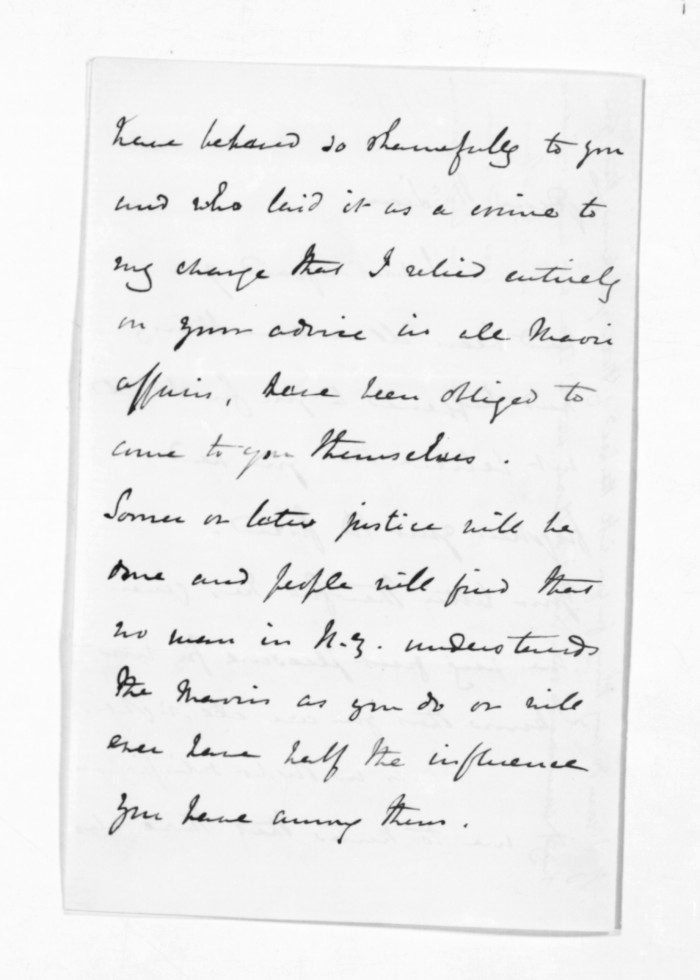 have behaved so shamefully to you
and who laid it as a crime to
my charge that I relied entirely
on your advice in all Maori
affairs, have been obliged to
come to you themselves.
Sooner or later justice will be
done and people will find that
no man in N.Z. understands
the Maoris as you do or will
ever have half the influence
you have among them.